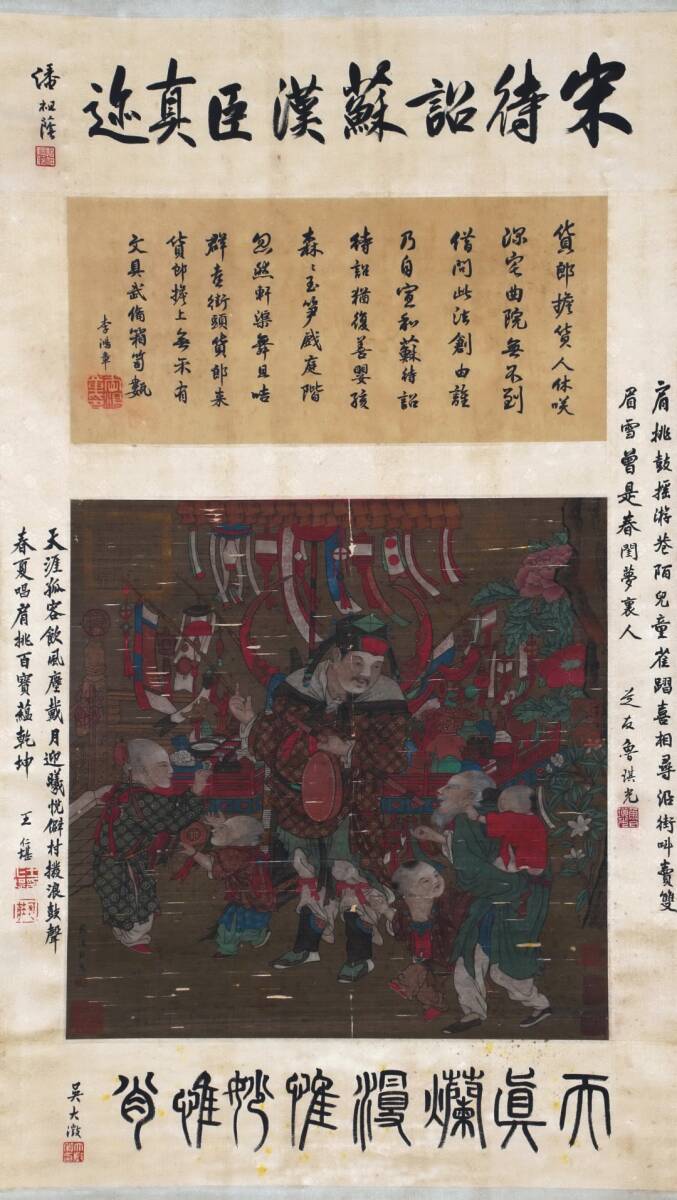 宋待詔蘇漢臣真迹
潘祖蔭
貨郎擔貨人休咲
深宅曲院無不到
借問此法創由誰
乃自宣和蘇待詔
待詔猶復善嬰孩
森〻玉笋戲庭階
忽然軒渠舞且咭
群走街頭貨郎来
貨郎擔上無不有
文具武備箱笥甀
李鴻章
肩挑鼓摇游巷陌兒童雀喜相尋沿街叫賣雙
眉雪曾是春閨夢裏人 芝友魯琪光
天涯孤客飲風塵戴月迎曦悦僻村撥浪鼓聲
春夏唱肩挑百寶蘊乾坤 王仁堪
天真爛漫惟妙惟肖
吳大澂